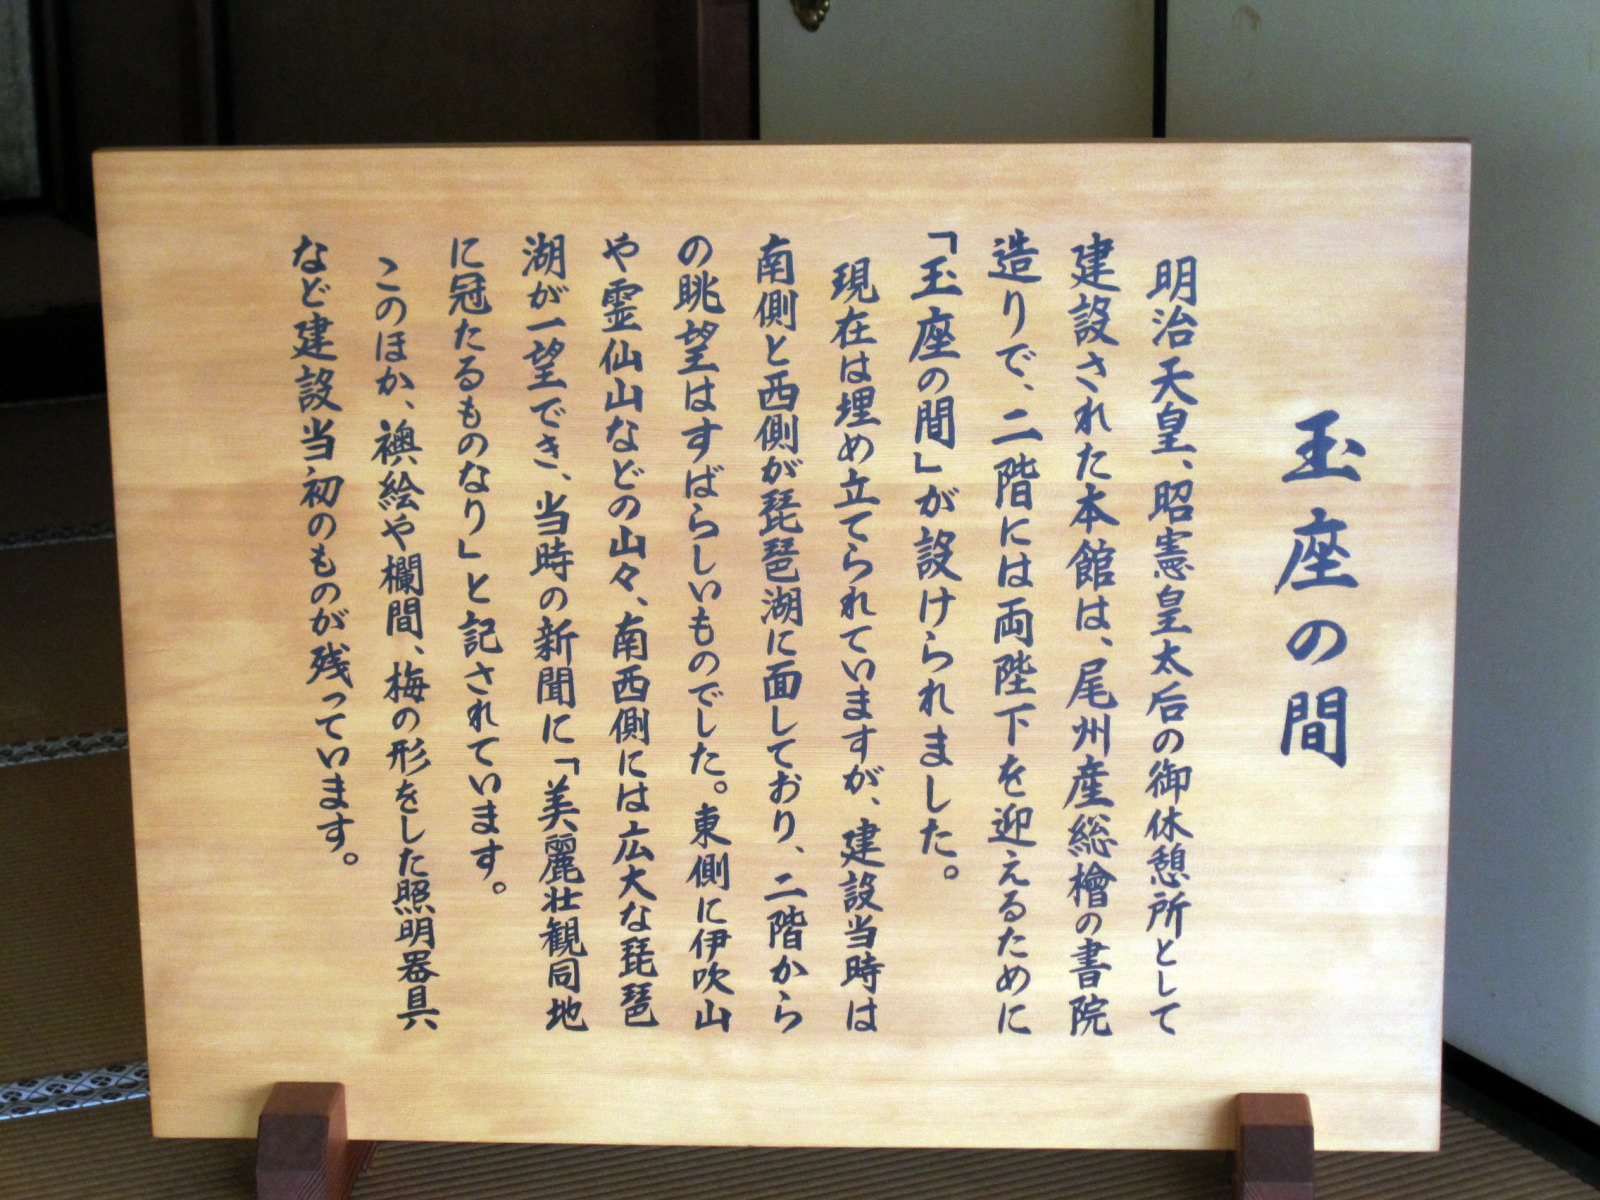 玉座の間
明治天皇、昭憲皇太后の御休憩所として
建設された本館は、尾州産総檜の書院
造りで、二階には両陛下を迎えるために
「玉座の間」が設けられました。
現在は埋め立てられていますが、建設当時は
南側と西側が琵琶湖に面しており、二階から
の眺望はすばらしいものでした。東側に伊吹山
や霊仙山などの山々、南西側には広大な琵琶
湖が一望でき、当時の新聞に「美麗壮観同地
に冠たるものなり」と記されています。
このほか、襖絵や欄間、梅の形をした照明器具
など建設当初のものが残っています。